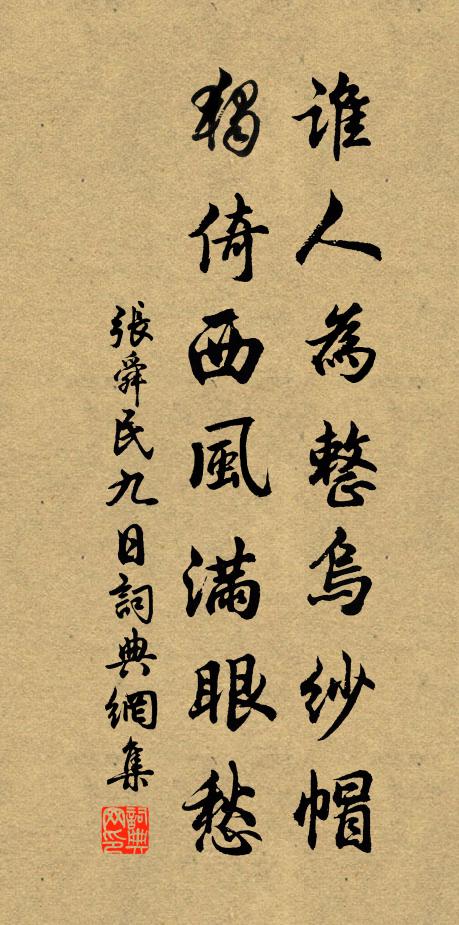 誰人為整烏紗帽
獨倚西風滿眼愁
張舜民九日詞典網集
詞典網印